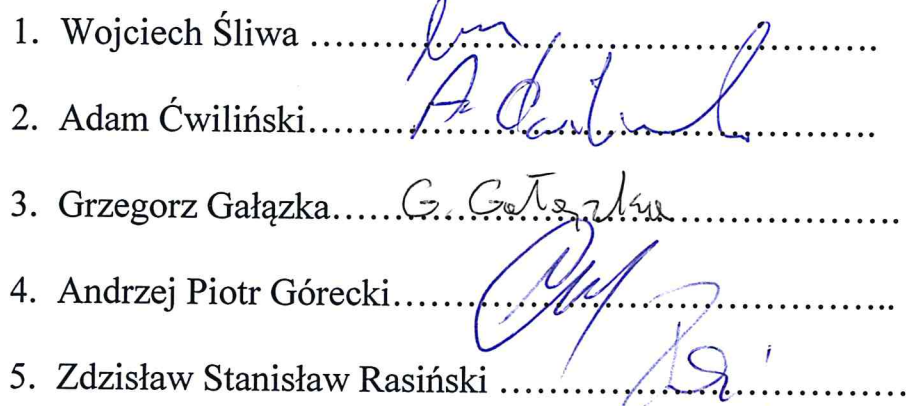 1. Wojciech Śliwa ........................................................
2. Adam Ćwiliński........................................................
3. Grzegorz Gałązka.....G. Gałązka........................
4. Andrzej Piotr Górecki..................................................
5. Zdzisław Stanisław Rasiński ........................................